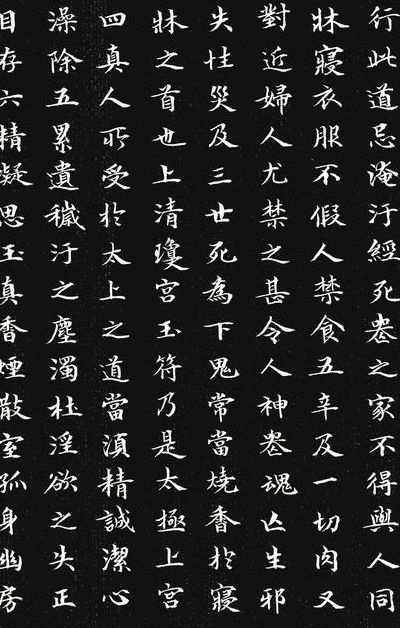 行此道忌淹汙經死喪之家不得與人同
牀寢衣服不假人禁食五辛及一切肉又
對近婦人尤禁之甚令人神喪魂亡生邪
失性災及三世死為下鬼常當燒香於寢
牀之首也上清瓊宮玉符乃是太極上宮
四真人所受於太上之道當須精誠潔心
澡除五累遺穢汙之塵濁杜淫欲之失正
目存六精凝思玉真香煙散室孤身幽房